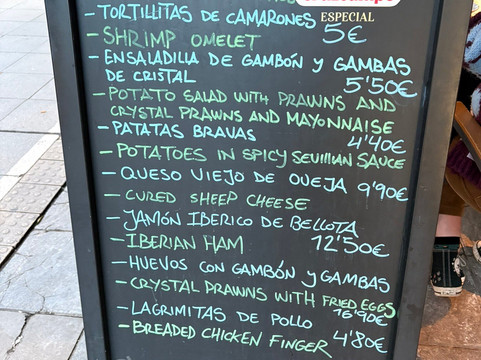 ESPECIAL
- TORTILLITAS DE CAMARONES 5€
- SHRIMP OMELET
- ENSALADILLA DE GAMBÓN y GAMBAS
DE CRISTAL 5'50€
- POTATO SALAD WITH PRAWNS AND
CRYSTAL PRAWNS AND MAYONNAISE
- PATATAS BRAVAS 4'40€
- POTATOES IN SPICY SEVILLIAN SAUCE
- QUESO VIEJO DE OVEJA 9'90€
- CURED SHEEP CHEESE
- JAMÓN IBERICO DE BELLOTA
- IBERIAN HAM 12'50€
- HUEVOS CON GAMBÓN y GAMBAS
- CRYSTAL PRAWNS WITH FRIED EGGS
16'90€
- LAGRIMITAS DE POLLO
- BREADED CHICKEN FINGER 4'80€